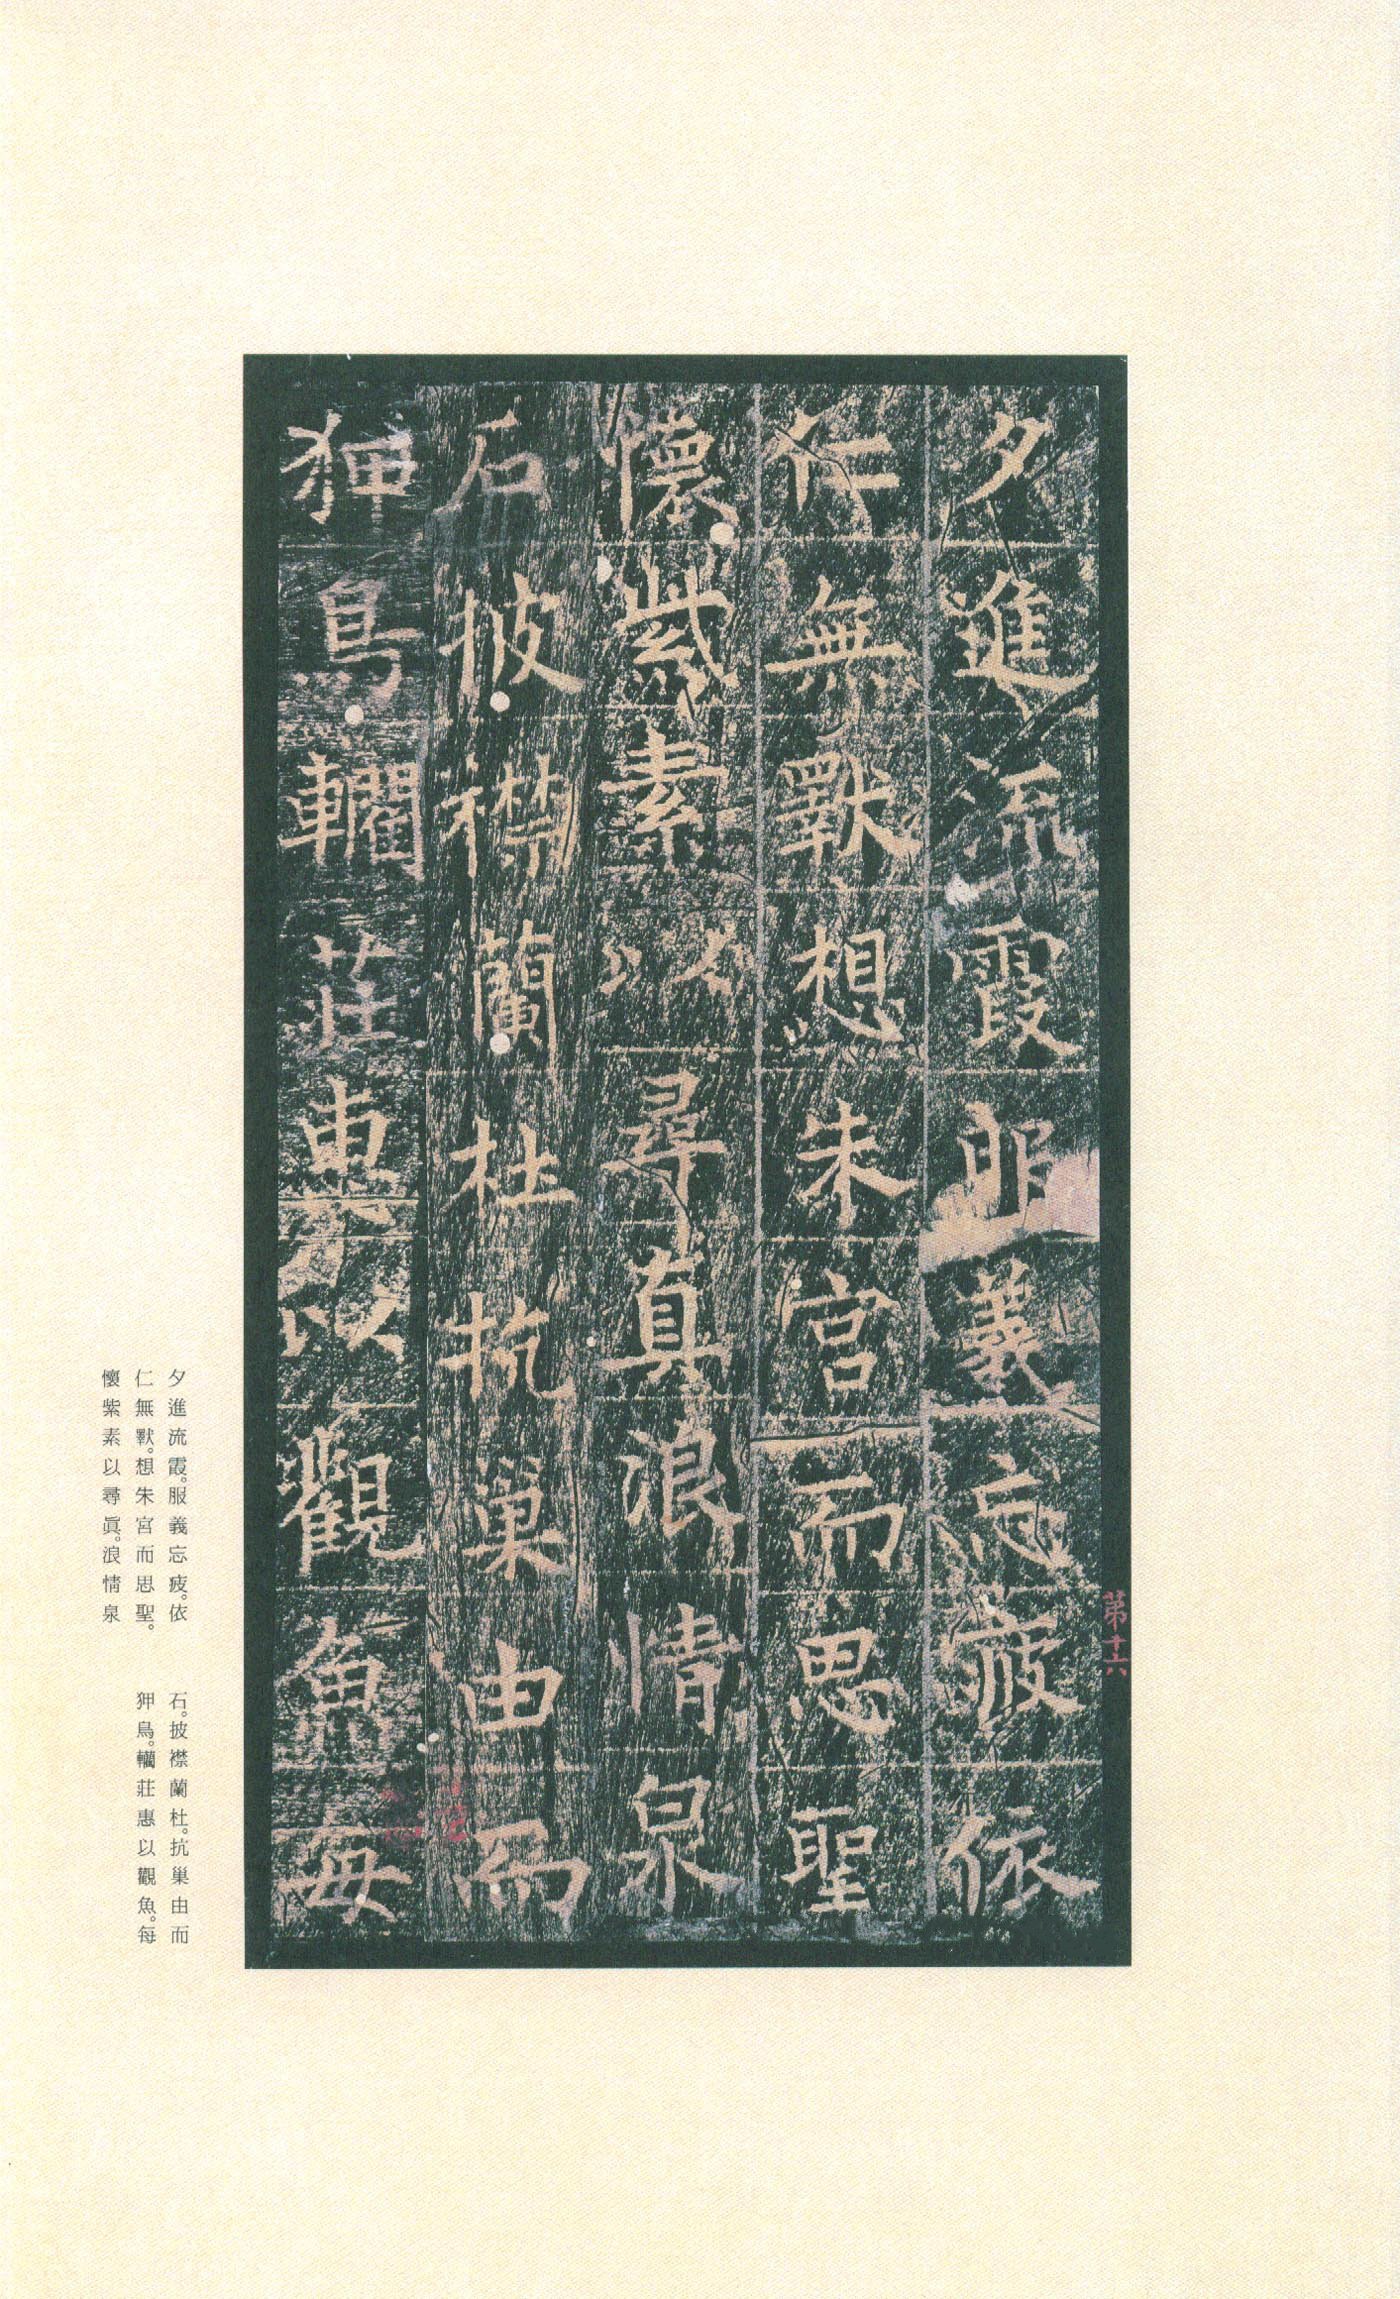 夕進流霞服義忘疲依
仁無猒想朱宮而思聖
懷紫素以尋真浪情泉
石披襟蘭杜抗巢由而
狎鳥轥莊惠以觀魚每
第十六
夕進流霞。服義忘疲。依
仁無猒。想朱宮而思聖。
懷紫素以尋眞。浪情泉
石。披襟蘭杜。抗巢由而
狎鳥。莊惠以觀魚。每